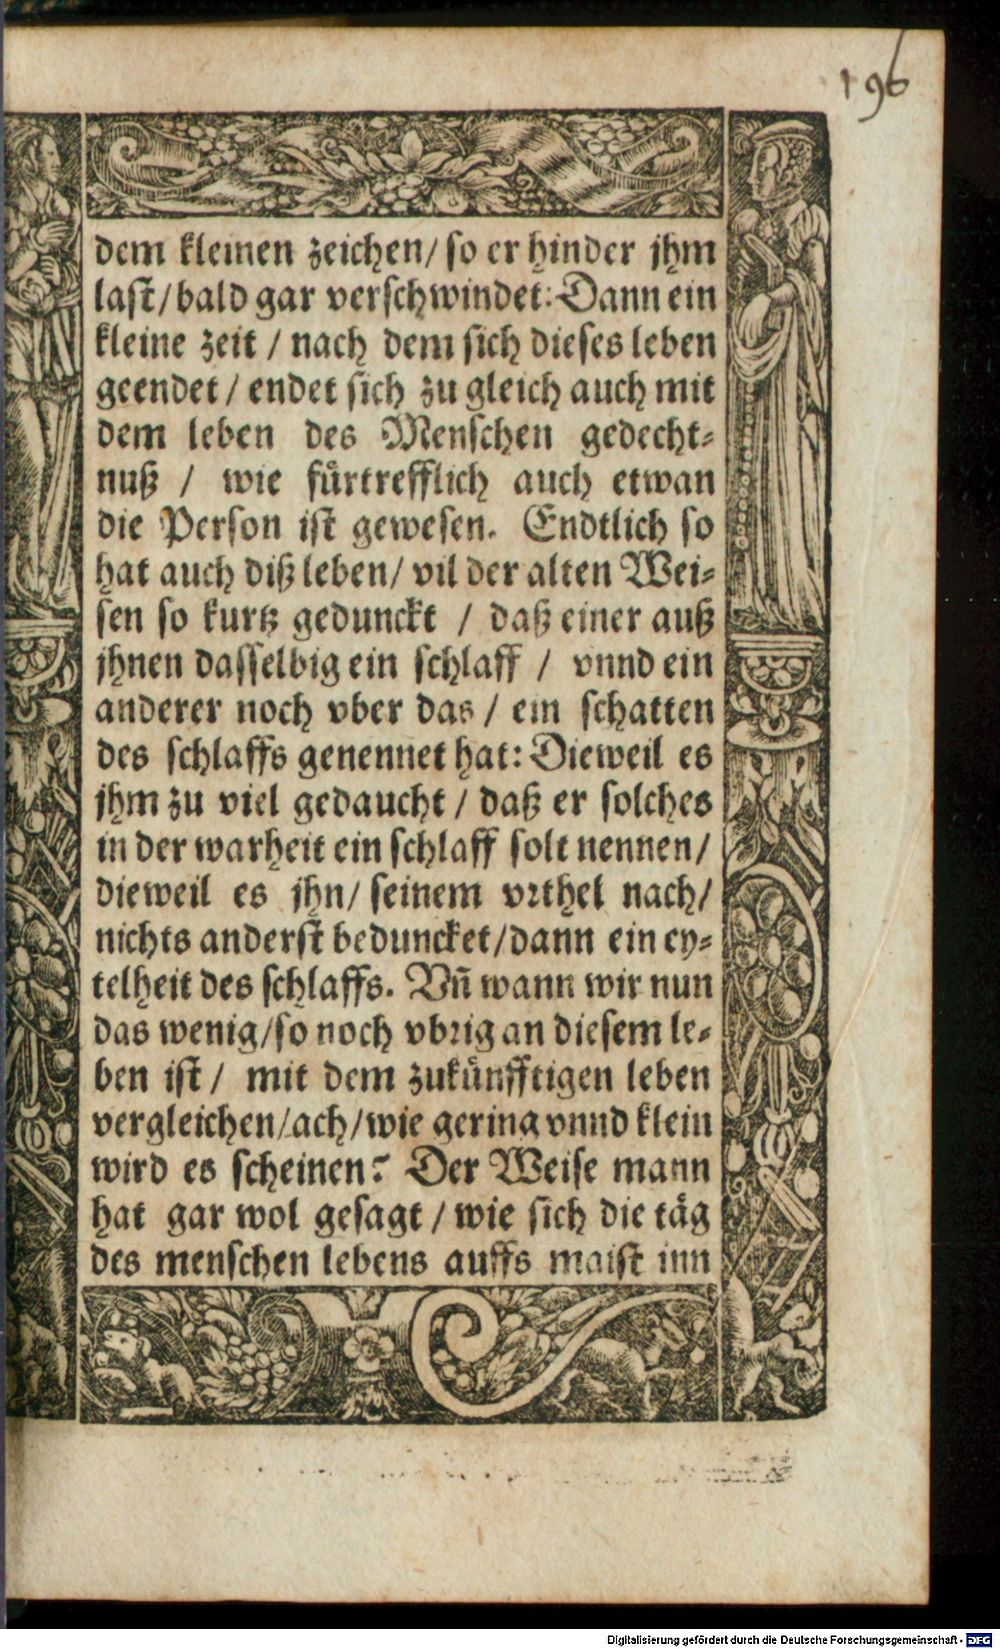 196
dem kleinen zeichen/ so er hinder jhm
last/ bald gar verschwindet: Dann ein
kleine zeit / nach dem sich dieses leben
geendet / endet sich zu gleich auch mit
dem leben des Menschen gedecht⸗
nuß / wie fürtrefflich auch etwan
die Person ist gewesen. Endtlich so
hat auch diß leben/ vil der alten Wei⸗
sen so kurtz gedunckt / daß einer auß
jhnen dasselbig ein schlaff / vnnd ein
anderer noch vber das / ein schatten
des schlaffs genennet hat: Dieweil es
jhm zu viel gedaucht / daß er solches
in der warheit ein schlaff solt nennen/
dieweil es jhn/ seinem vrthel nach/
nichts anderst beduncket/ dann ein ey⸗
telheit des schlaffs. Vñ wann wir nun
das wenig/ so noch vbrig an diesem le⸗
ben ist / mit dem zukünfftigen leben
vergleichen/ ach/ wie gering vnnd klein
wird es scheinen? Der Weise mann
hat gar wol gesagt / wie sich die täg
des menschen lebens auffs maist inn
Digitalisierung gefördert durch die Deutsche Forschungsgemeinschaft - DFG